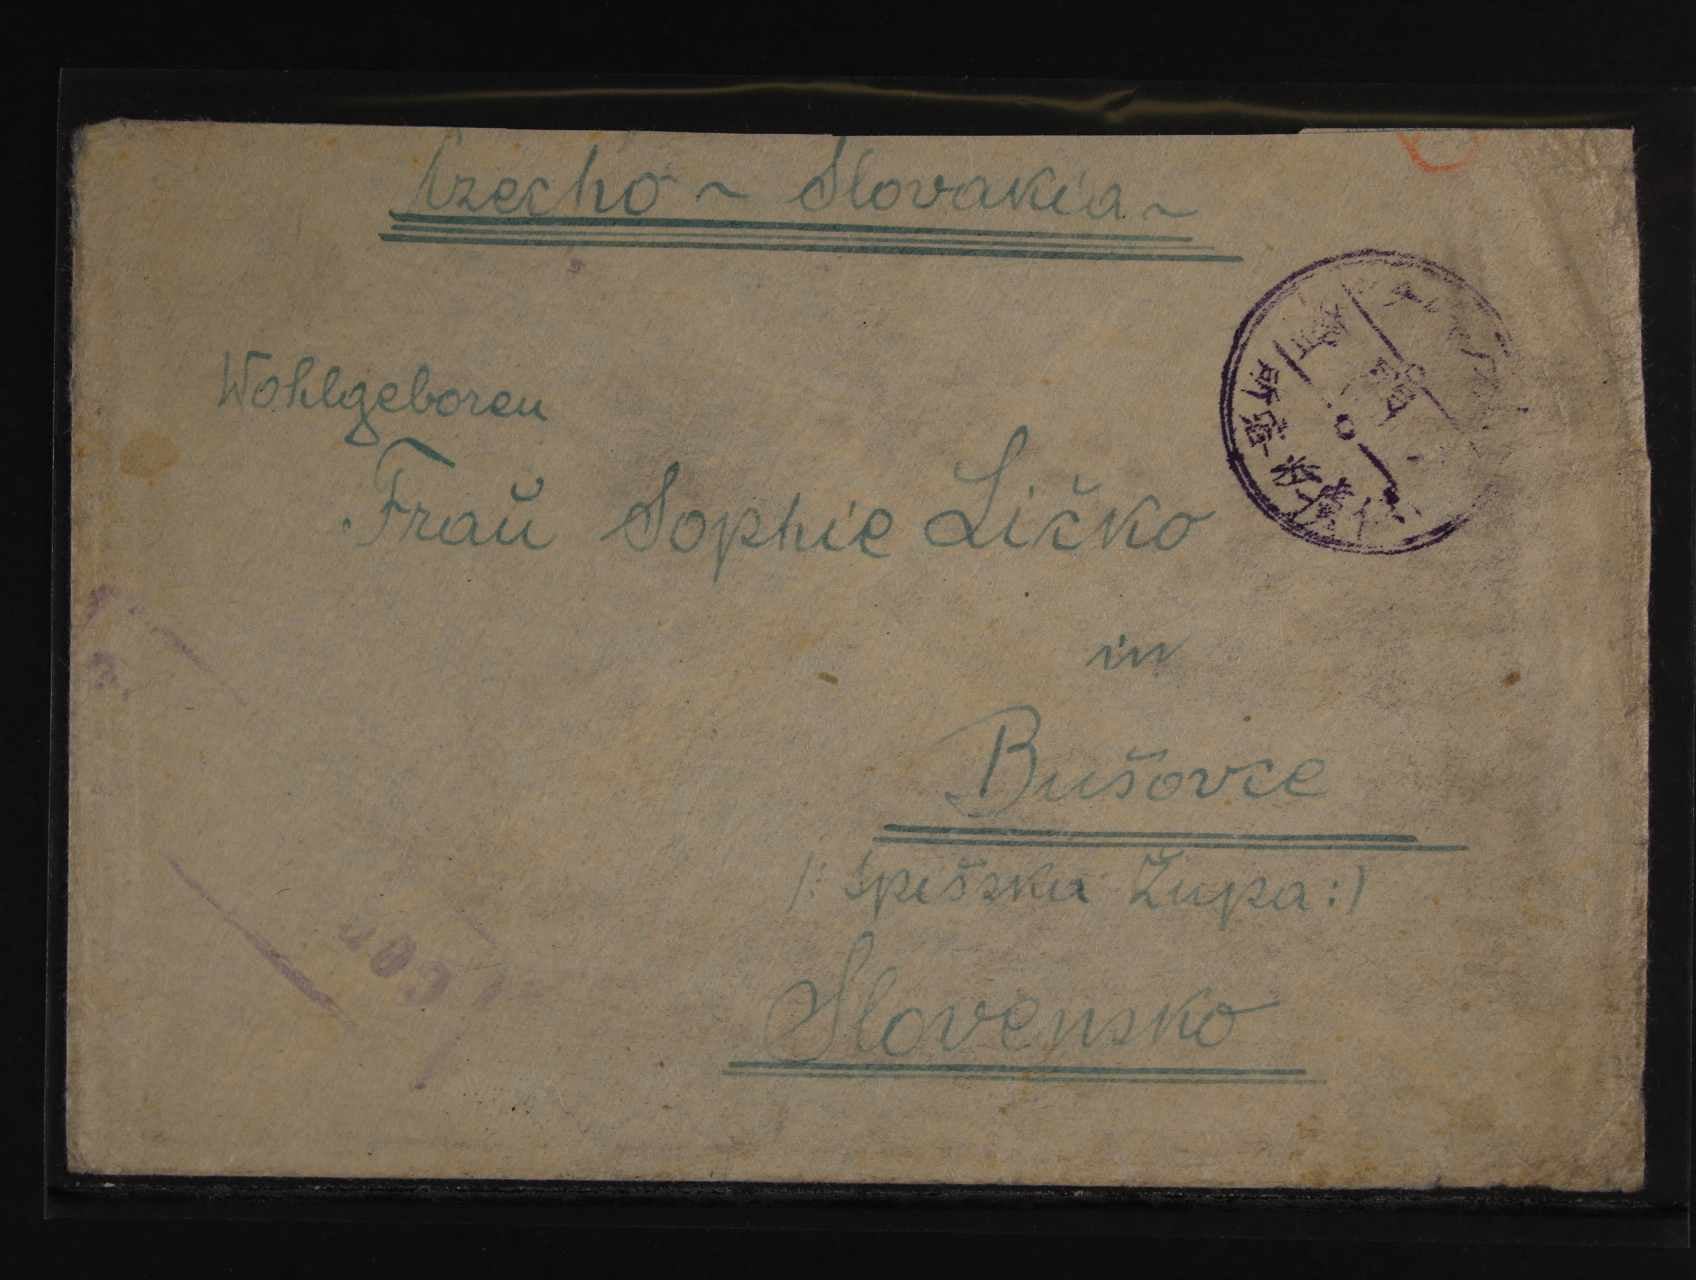 Czecho ~ Slovakia ~
Wohlgeboren
Fraŭ Sophie Ličko
in
Bušovce
/: Spišska Župa :/
Slovensko